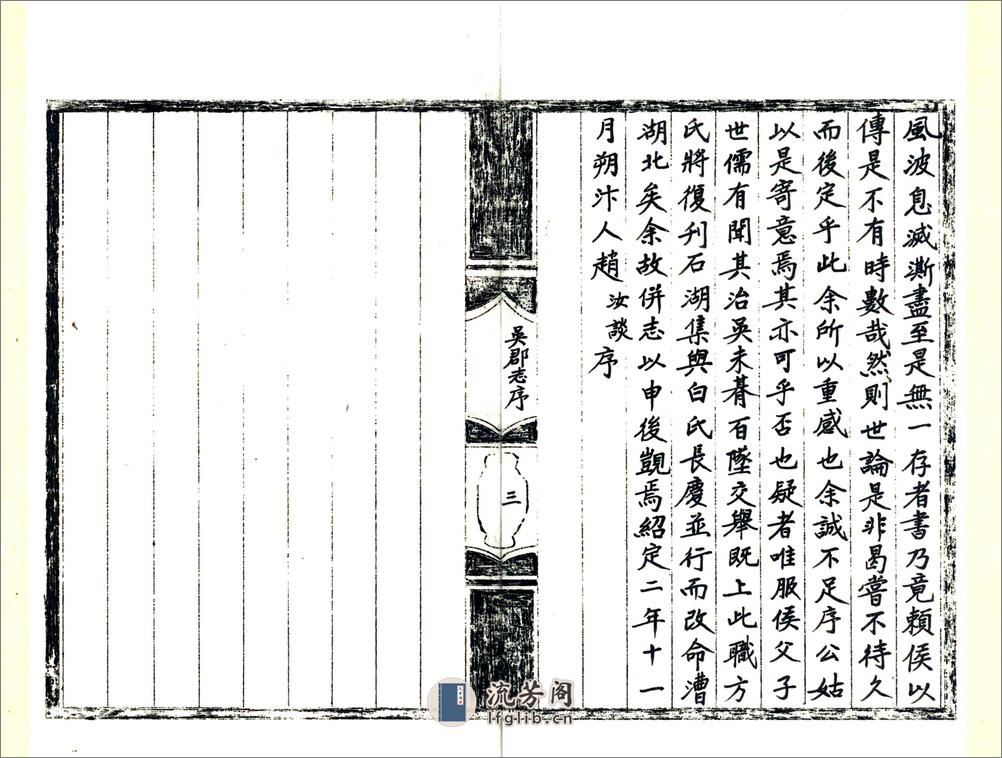 風波息滅澌盡至是無一存者書乃竟賴侯以
傳是不有時數哉然則世論是非曷嘗不待久
而後定乎此余所以重感也余誠不足序公姑
以是寄意焉其亦可乎否也疑者唯服侯父子
世儒有聞其治吳未朞百墜交舉既上此職方
氏將復刋石湖集與白氏長慶並行而改命漕
湖北矣余故併志以申後覬焉紹定二年十一
月朔汴人趙汝談序
吳郡志序
三
流芳阁
lfglib.cn